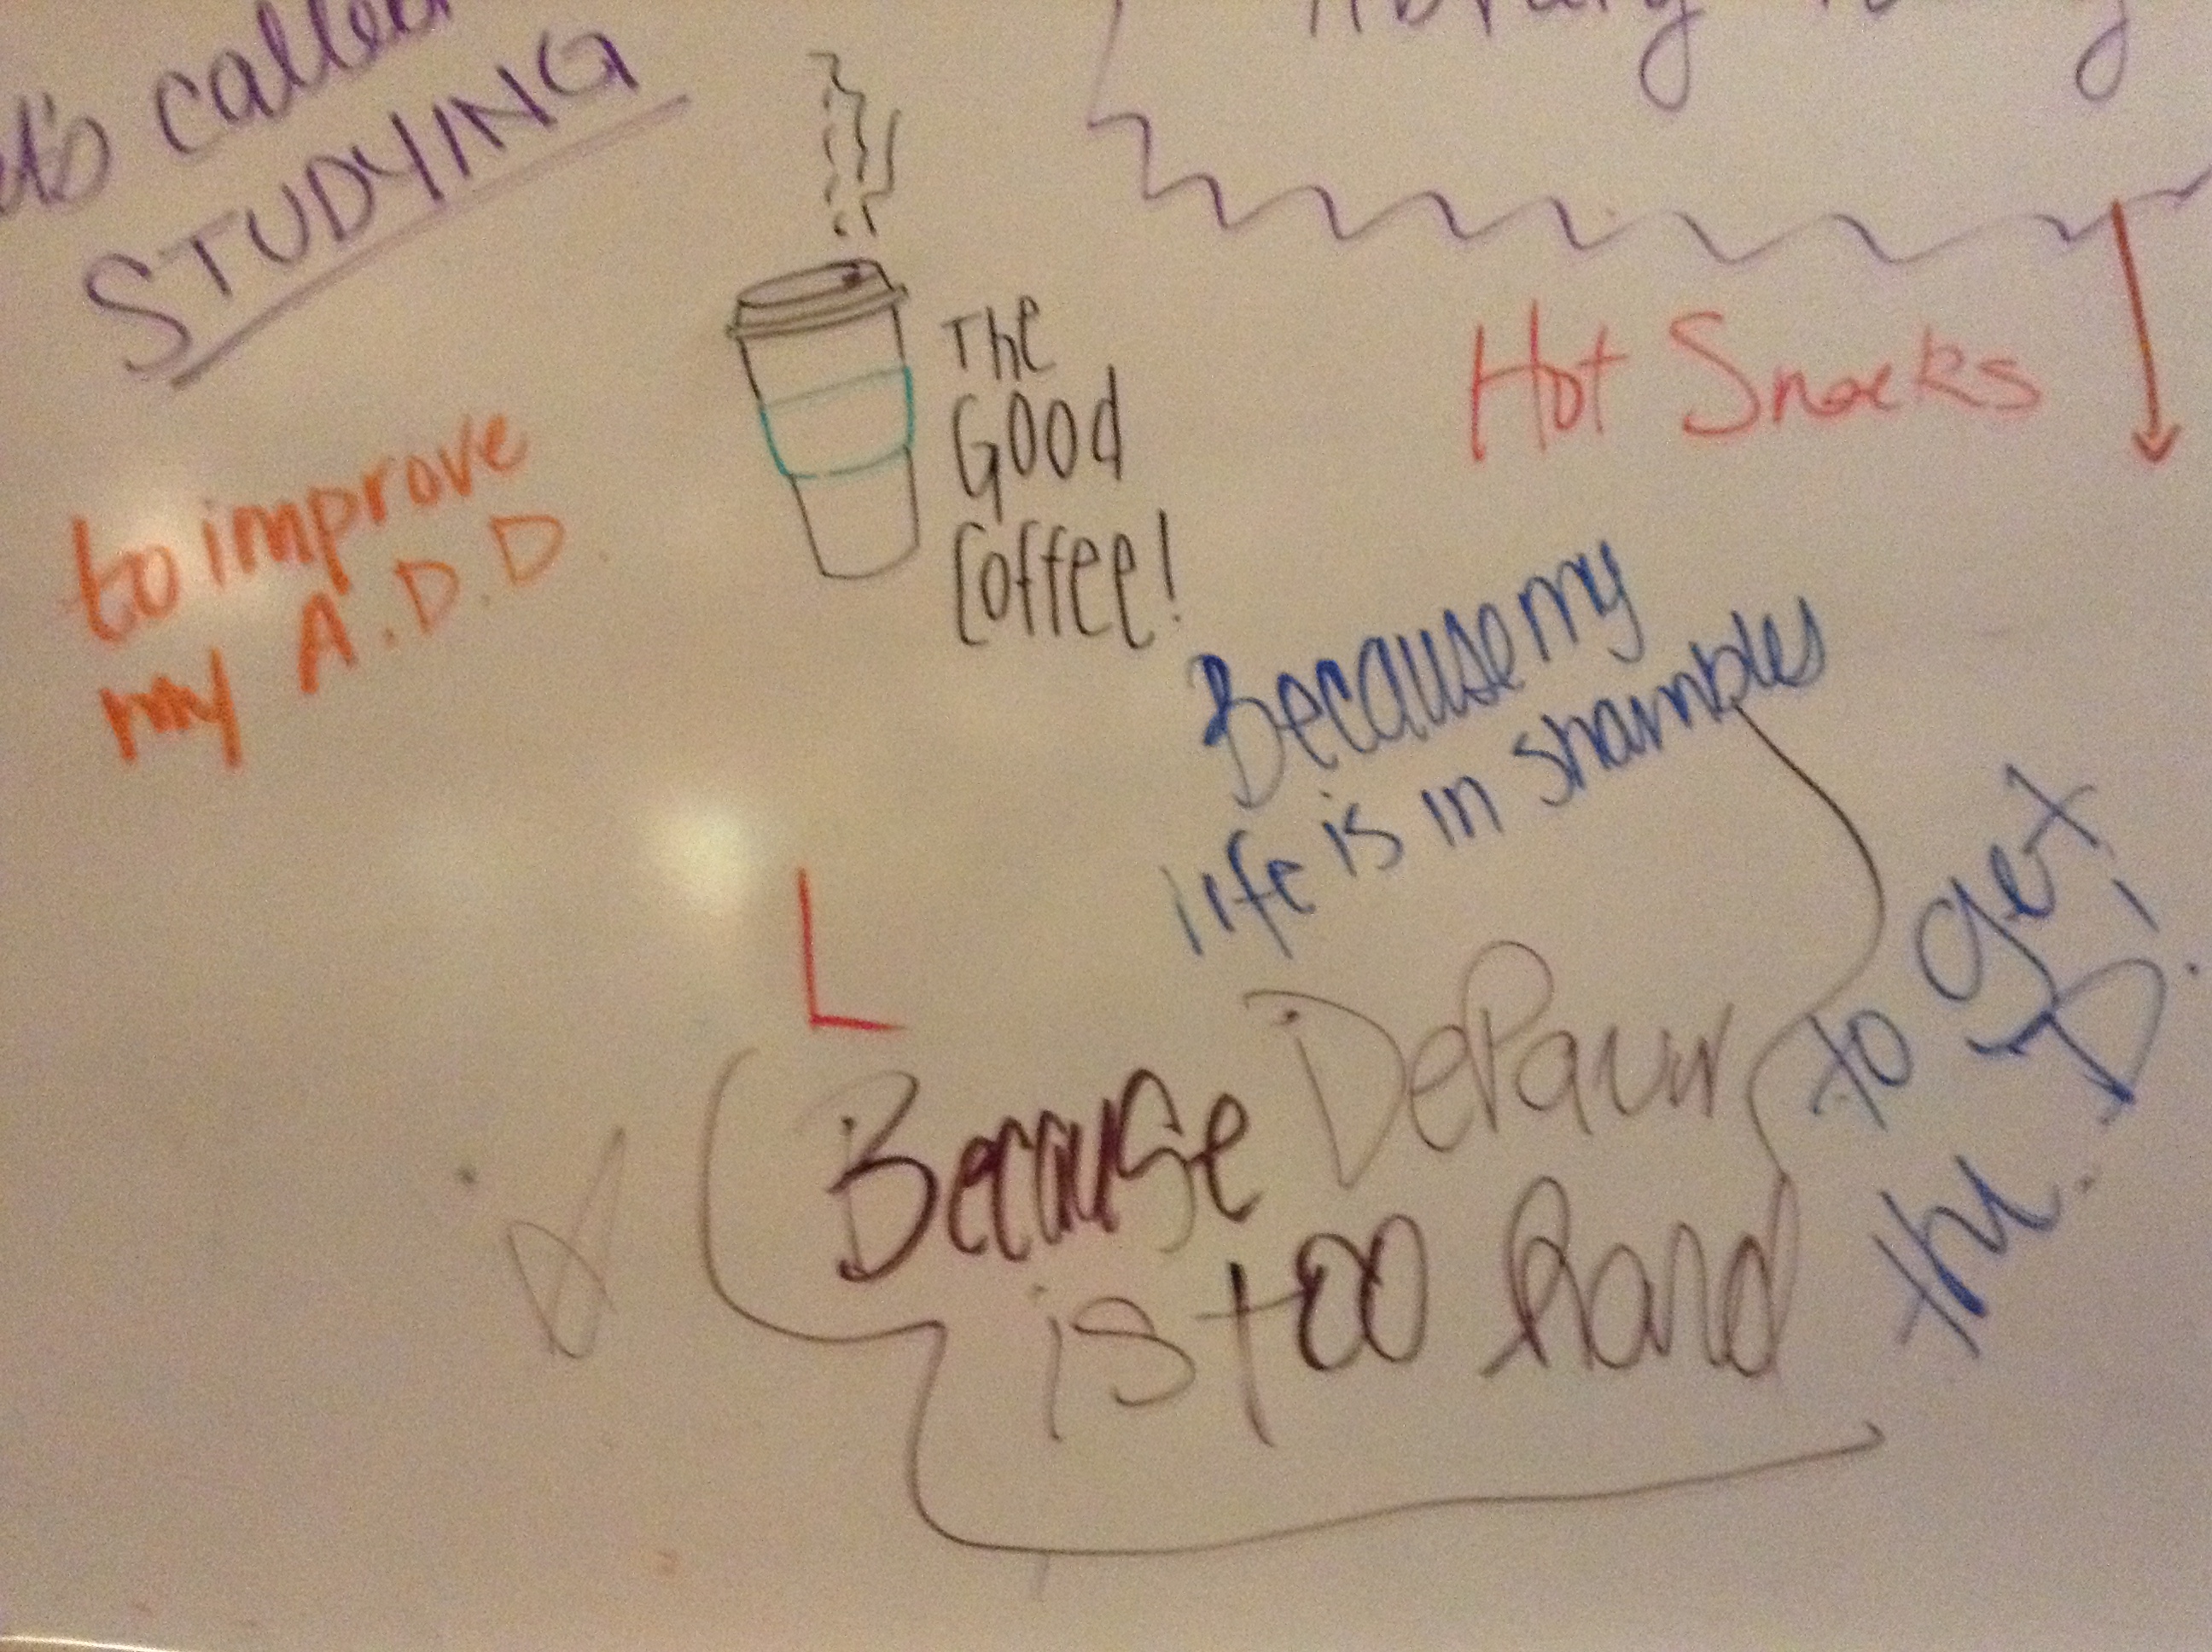 it's called
STUDYING
library today
The
Good
Coffee!
Hot Snacks
to improve
my A.D.D.
Because my
life is in shambles
L
to get
the D.
Because DePauw
is too hard